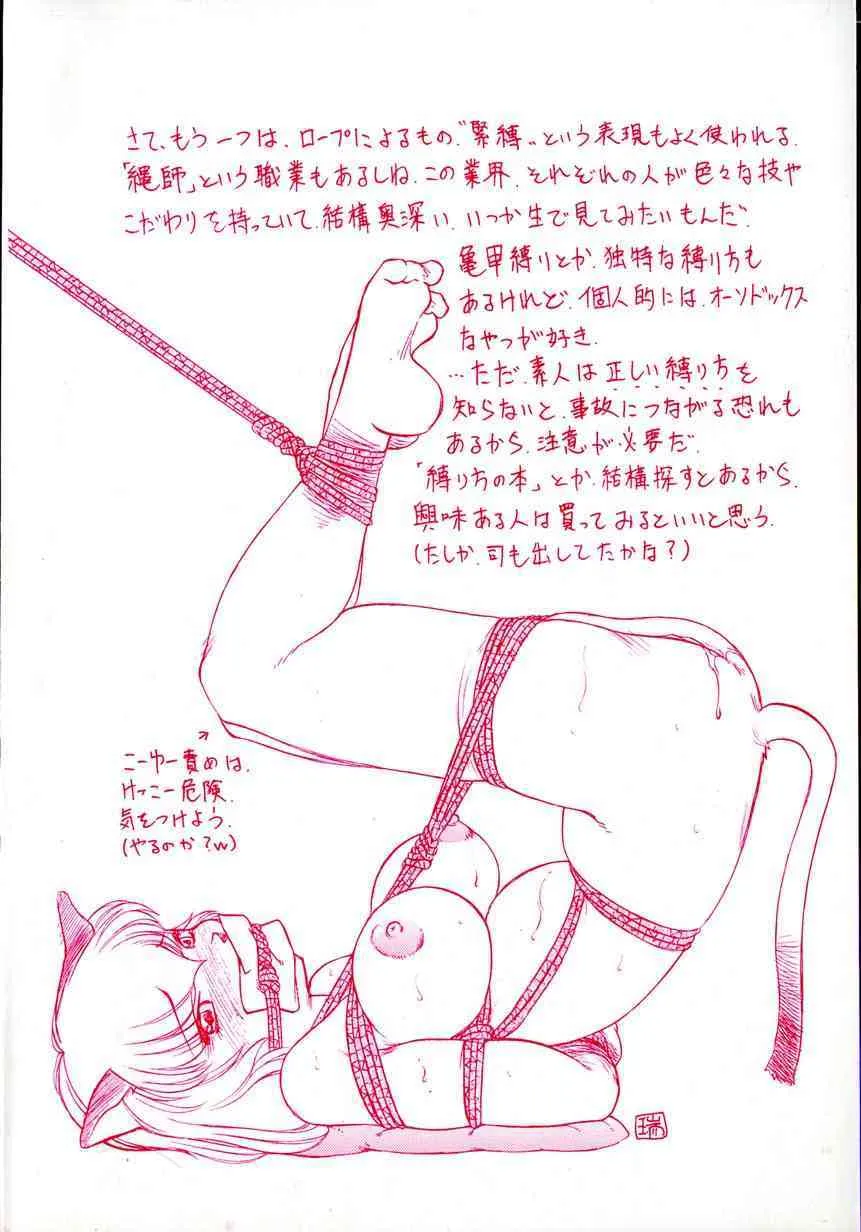 さて、もう一つは、ロープによるもの〝緊縛〟という表現もよく使われる.
「縄師」という職業もあるしね. この業界. それぞれの人が色々な技や
こだわりを持っていて、結構奥深い. いつか生で見てみたいもんだ.
亀甲縛りとか. 独特な縛り方も
あるけれど. 個人的には、オーソドックス
なやつが好き.
…ただ. 素人は正しい縛り方を
知らないと、事故につながる恐れも
あるから. 注意が必要だ.
「縛り方の本」とか. 結構探すとあるから.
興味ある人は買ってみるといいと思う.
(たしか. 司も出してたかな?)
こーゆー責めは、
けっこー危険.
気をつけよう.
(やるのか?w)
瑞